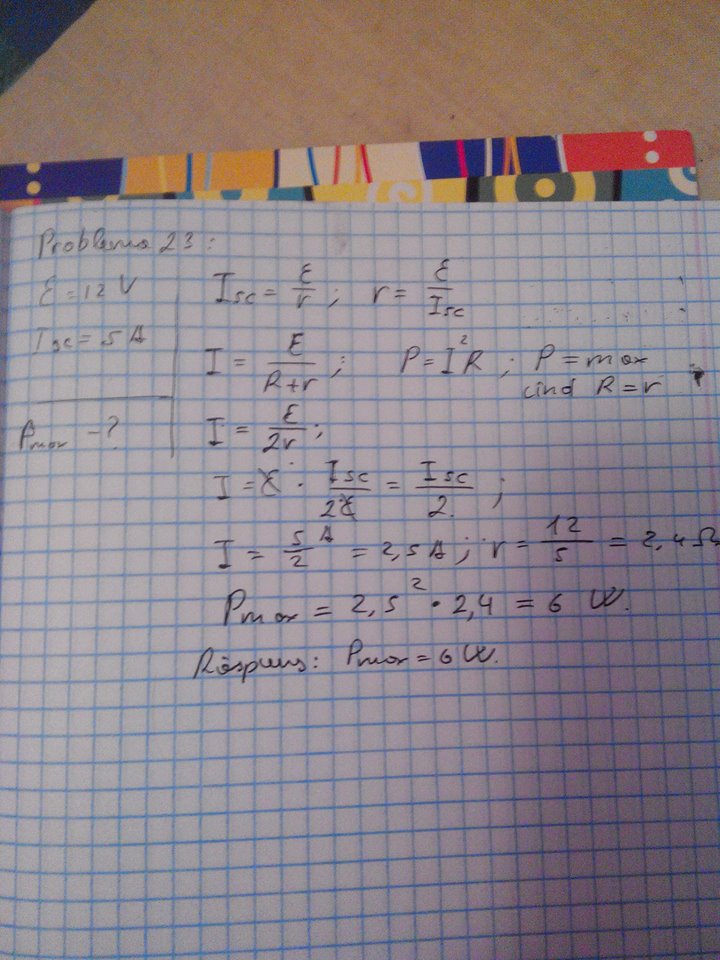 Problema 23:
ℰ = 12 V
Isc = 5 A
Pmax - ?
Isc = ℰ/r ; r = ℰ/Isc
I = ℰ/(R+r) ; P = I²R ; P = max
cînd R = r
I = ℰ/2r ;
I = ℰ · Isc/2ℰ = Isc/2 ;
I = 5/2 A = 2,5 A ; r = 12/5 = 2,4 Ω
Pmax = 2,5² · 2,4 = 6 W.
Răspuns: Pmax = 6 W.